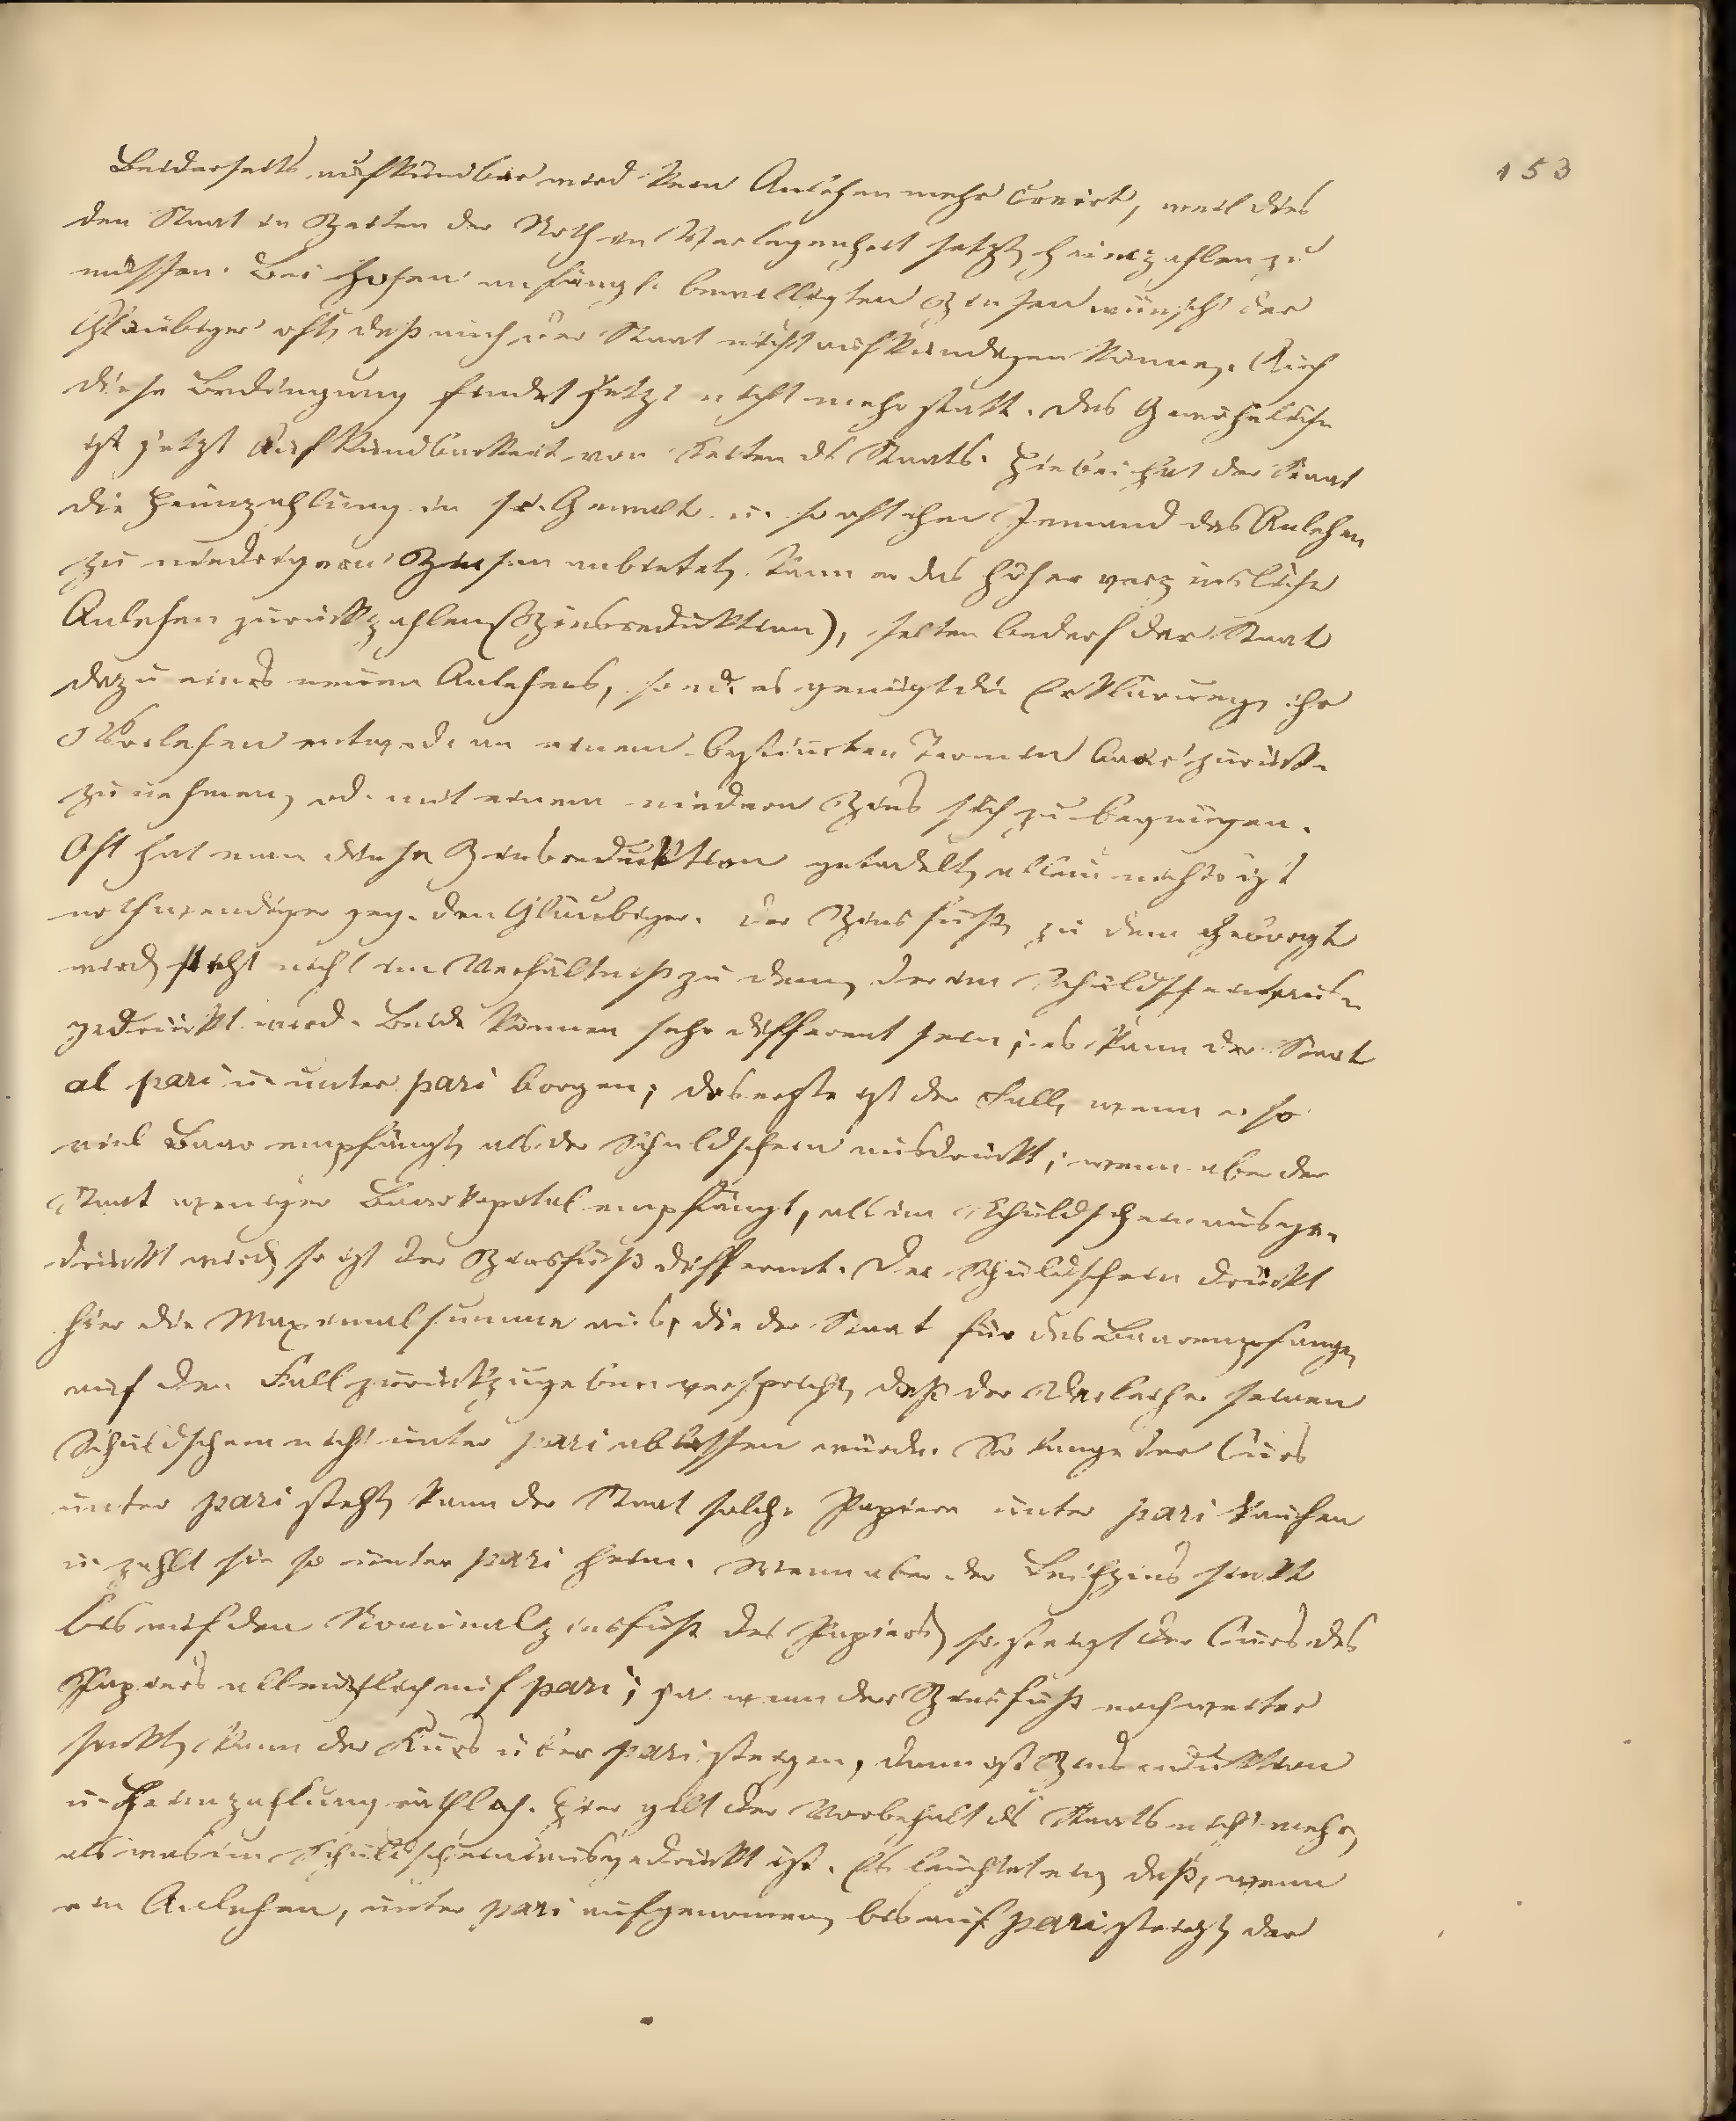 153
Beiderseits aufkündbar wird kein Anlehen mehr creirt, weil dies
den Staat in Zeiten der Noth in Verlegenheit setzt, heimzahlen zu
müssen. Bei hohen anfängl. bewilligten Zinsen wünscht der
Gläubiger oft, daß auch der Staat nicht aufkündigen könne. Auch
diese Bedingung findet jetzt nicht mehr statt. Das Gewöhnliche
ist jetzt Aufkündbarkeit von Seiten ds Staats. Hiebei hat der Staat
die Heimzahlung in sr. Gewalt u. so oft ihm Jemand das Anlehen
zu niedrigern Zinsen anbietet, kann er das höher verzinsliche
Anlehen zurückzahlen (Zinsreduktion), selten bedarf der Staat
dazu eines neuen Anlehens, sond. es genügt die Erklärung, ihr
Vorlehen entwed. an einem bestimten Termin baar zurück-
zunehmen, od. mit einem niedern Zins sich zu begnügen.
Oft hat man diese Zinsreduktion getadelt, allein nichts ist
nothwendiger geg. den Gläubiger. Der Zinsfuß, zu dem geborgt
wird, steht nicht im Verhältniß zu dem, der im Schuldschein aus-
gedrückt wird. Beide können sehr different sein; es kann der Staat
al pari u. unter pari borgen; das erste ist der Fall, wenn er so
viel Baar empfängt, als der Schuldschein ausdrückt; wenn aber der
Staat weniger Baarkapital empfängt, als im Schuldschein ausge-
drückt wird, so ist der Zinsfuß different. Der Schuldschein drückt
hier die Maximalsumme aus, die der Staat für das Baarempfangene
auf den Fall zurückzugeben verspricht, daß der Verleiher seinen
Schuldschein nicht unter pari ablassen würde. So lange der Curs
unter pari steht, kann der Staat solche Papiere unter pari kaufen
u. zahlt sie so unter pari heim. Wenn aber der Leihzins sinkt
bis auf den Nominalzinsfuß des Papiers, so steigt der Curs des
Papiers allmählich auf pari; ja wenn der Zinsfuß noch weiter
sinkt, kann der Kurs über pari steigen, dann ist Zinsreduktion
u. Heimzahlung räthlich. Hier gilt der Vorbehalt ds Staats nicht mehr,
als was im Schuldschein ausgedrückt ist. Es leuchtet ein, daß, wenn
ein Anlehen, unter pari aufgenomen, bis auf pari steigt, der